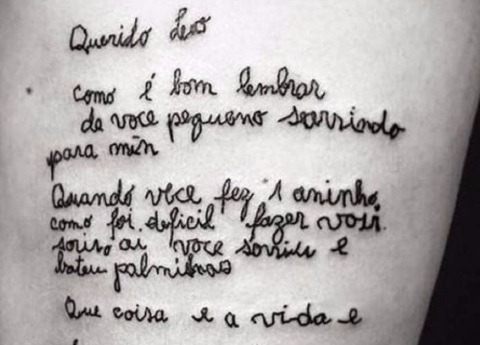 Querido Leo
como é bom lembrar
de voce pequeno sorrindo
para min
Quando voce fez 1 aninho,
como foi deficil fazer voce
sorir, ai voce sorriu e
bateu palminhas
Que coisa e a vida e